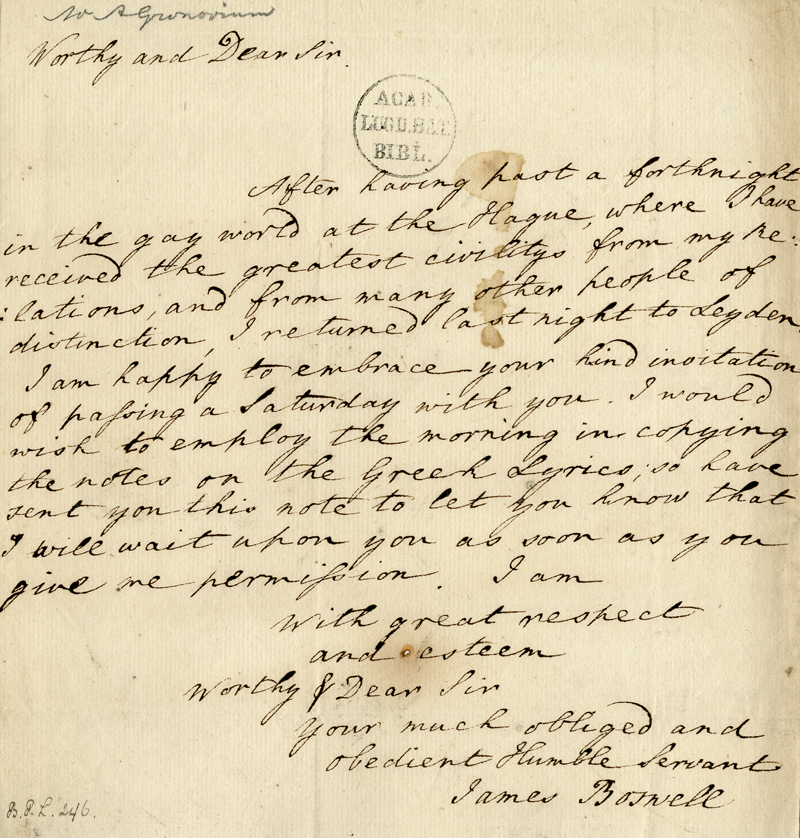 A Gronovium
Worthy and Dear Sir.
ACAD.
LUGD. BAT.
BIBL.
After having past a forthnight
in the gay world at the Hague, where I have
received the greatest civilitys from my Re:
:lations, and from many other people of
distinction, I returned last night to Leyden.
I am happy to embrace your kind invitation
of passing a Saturday with you. I would
wish to employ the morning in copying
the notes on the Greek Lyrics; so have
sent you this note to let you know that
I will wait upon you as soon as you
give me permission. I am
With great respect
and esteem
Worthy & Dear Sir
your much obliged and
obedient Humble Servant
James Boswell
B.P.L. 246.